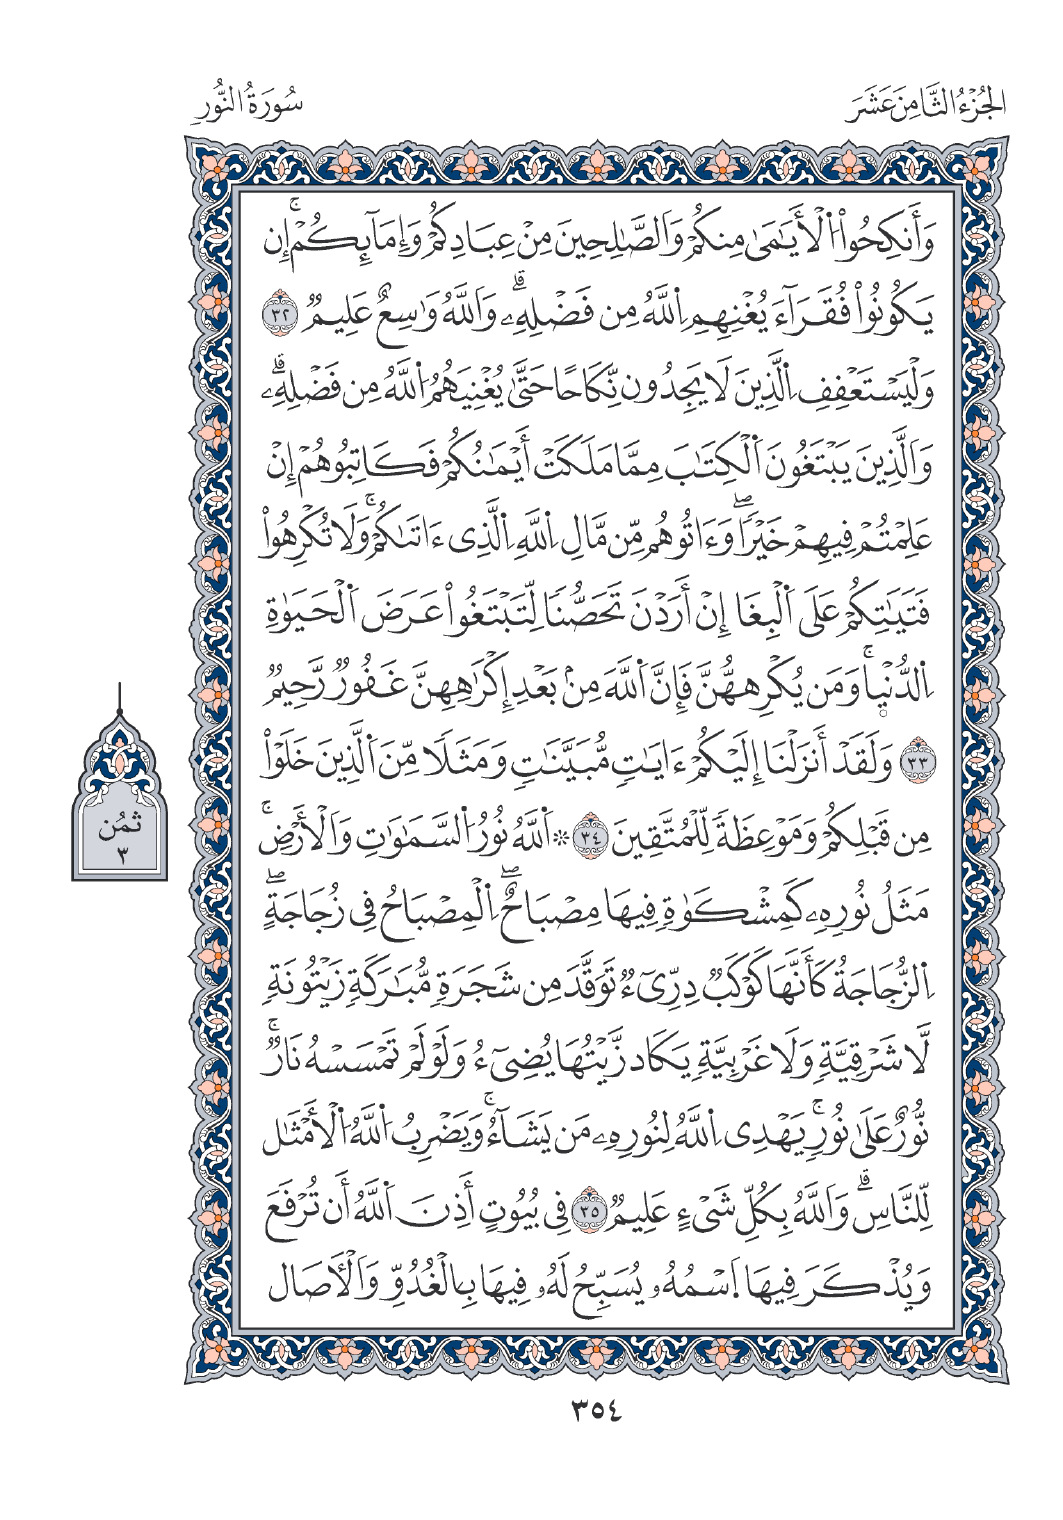 الجُزْءُ الثَّامِنَ عَشَرَ
سُورَةُ النُّورِ
وَأَنكِحُواْ اُلْأَيَٰمَىٰ مِنكُمْ وَاَلصَّٰلِحِينَ مِنْ عِبَادِكُمْ وَإِمَآئِكُمْۚ إِن
يَكُونُواْ فُقَرَآءَ يُغْنِهِمِ اِللَّهُ مِن فَضْلِهِۦۗ وَاَللَّهُ وَٰسِعٌ عَلِيمٞ ٣٢
وَلْيَسْتَعْفِفِ اِلَّذِينَ لَا يَجِدُون نِّكَاحًا حَتَّىٰ يُغْنِيَهُمُ اُللَّهُ مِن فَضْلِهِۦۗ
وَاَلَّذِينَ يَبْتَغُونَ اَلْكِتَٰبَ مِمَّا مَلَكَتْ أَيْمَٰنُكُمْ فَكَاتِبُوهُمْ إِنْ
عَلِمْتُمْ فِيهِمْ خَيْرٗاۖ وَءَاتُوهُم مِّن مَّالِ اِللَّهِ اِلَّذِي ءَاتَىٰكُمْۚ وَلَا تُكْرِهُواْ
فَتَيَٰتِكُمْ عَلَى اَلْبِغَا إِنْ أَرَدْنَ تَحَصُّنٗا لِّتَبْتَغُواْ عَرَضَ اَلْحَيَوٰةِ
اِلدُّنْيۭاۚ وَمَن يُكْرِههُّنَّ فَإِنَّ اَللَّهَ مِنۢ بَعْدِ إِكْرَٰهِهِنَّ غَفُورٞ رَّحِيمٞ
٣٣ وَلَقَدْ أَنزَلْنَا إِلَيْكُمْ ءَايَٰتٖ مُّبَيَّنَٰتٖ وَمَثَلٗا مِّنَ اَلَّذِينَ خَلَوْاْ
مِن قَبْلِكُمْ وَمَوْعِظَةٗ لِّلْمُتَّقِينَ ٣٤ ۞ اَللَّهُ نُورُ اُلسَّمَٰوَٰتِ وَاَلْأَرْضِۚ
مَثَلُ نُورِهِۦ كَمِشْكَوٰةٖ فِيهَا مِصْبَاحٌۖ اِلْمِصْبَاحُ فِي زُجَاجَةٍۖ
اِلزُّجَاجَةُ كَأَنَّهَا كَوْكَبٞ دِرِّيٓءٞ تَوَقَّدَ مِن شَجَرَةٖ مُّبَٰرَكَةٖ زَيْتُونَةٖ
لَّا شَرْقِيَّةٖ وَلَا غَرْبِيَّةٖ يَكَاد زَّيْتُهَا يُضِيٓءُ وَلَوْ لَمْ تَمْسَسْهُ نَارٞۚ
نُّورٌ عَلَىٰ نُورٖۚ يَهْدِي اِللَّهُ لِنُورِهِۦ مَن يَشَآءُۚ وَيَضْرِبُ اُللَّهُ اُلْأَمْثَال
لِّلنَّاسِۗ وَاَللَّهُ بِكُلِّ شَيْءٍ عَلِيمٞ ٣٥ فِي بُيُوتٍ أَذِنَ اَللَّهُ أَن تُرْفَعَ
وَيُذْكَرَ فِيهَا اَسْمُهُۥ يُسَبِّحُ لَهُۥ فِيهَا بِالْغُدُوِّ وَاَلْأٓصَال
ثمُن
٣
٣٥٤